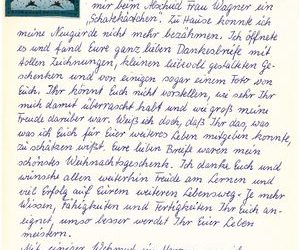 mir beim Abschied Frau Wagner ein
"Schatzkästchen". Zu Hause konnte ich
meine Neugierde nicht mehr bezähmen. Ich öffnete
es und fand Eure ganz lieben Dankesbriefe mit
tollen Zeichnungen, kleinen liebevoll gestalteten Ge-
schenken und von einigen sogar einem Foto von
Euch. Ihr könnt Euch nicht vorstellen, wie sehr Ihr
mich damit überrascht habt und wie groß meine
Freude darüber war. Weiß ich doch, daß Ihr das, was
was ich Euch für Euer weiteres Leben mitgeben konnte,
zu schätzen wißt. Eure lieben Briefe waren mein
schönstes Weihnachtsgeschenk. Ich danke Euch und
wünsche allen weiterhin Freude am Lernen und
viel Erfolg auf Eurem weiteren Lebensweg. Je mehr
Wissen, Fähigkeiten und Fertigkeiten Ihr Euch an-
eignet, umso besser werdet Ihr Euer Leben
meistern.
Mit einiger Wehmut